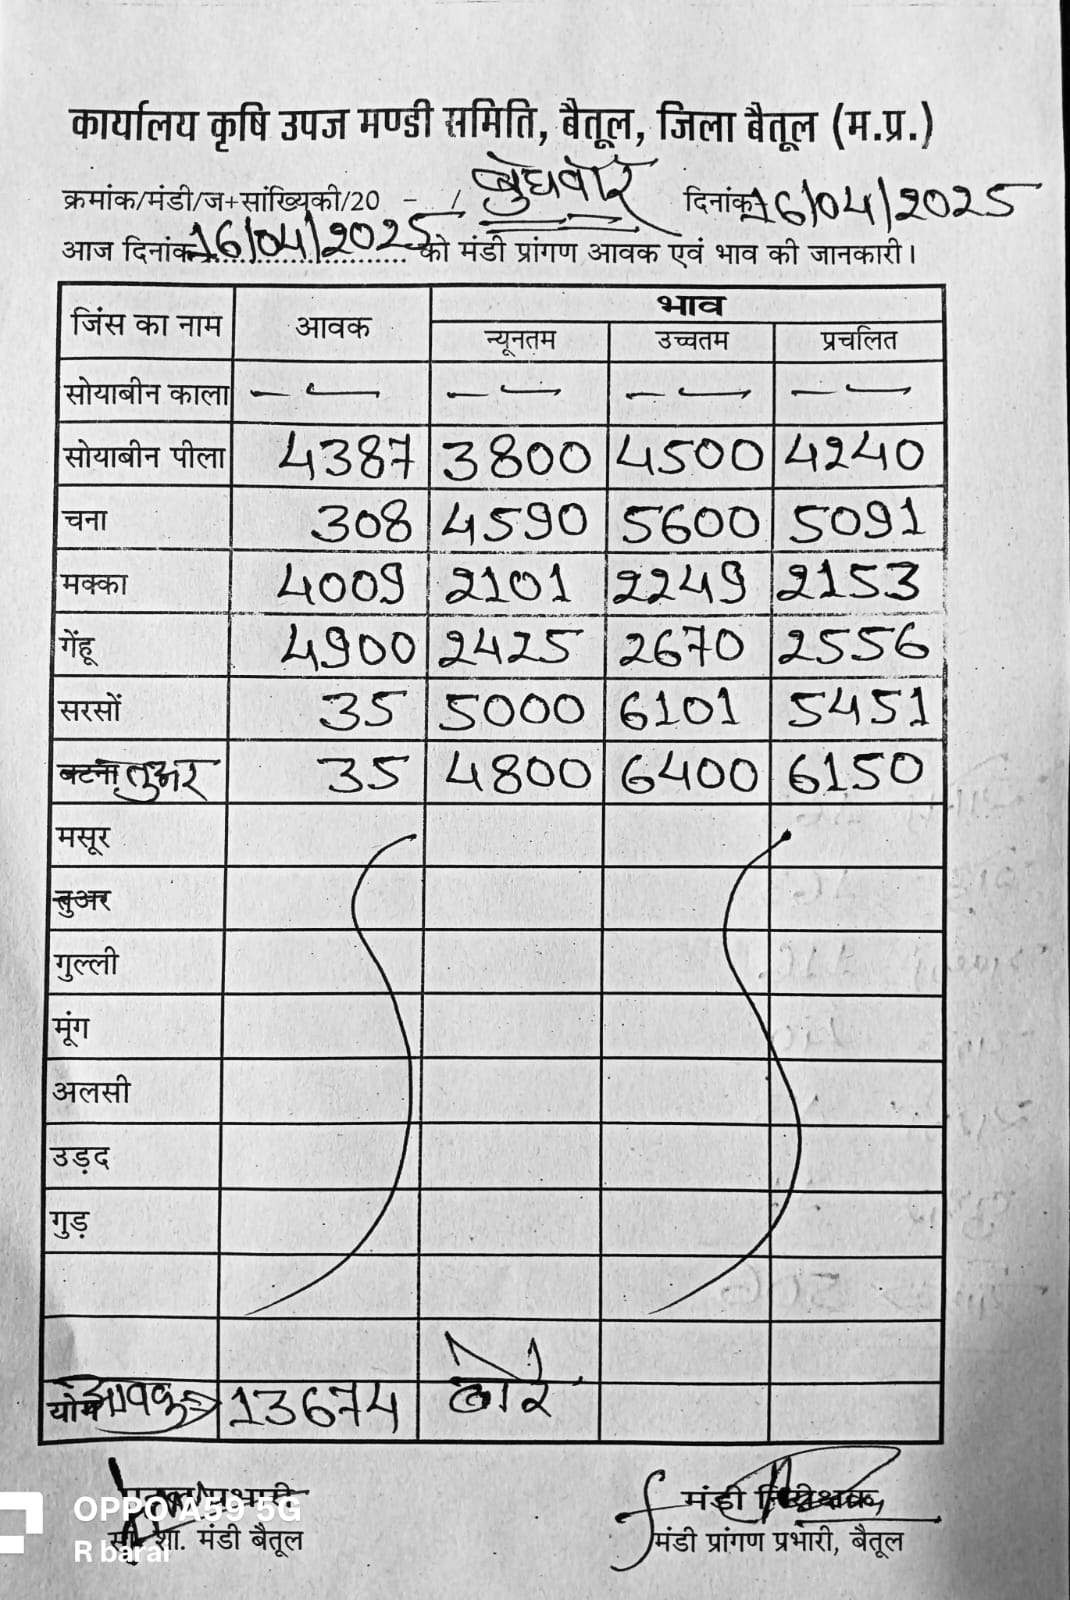 कार्यालय कृषि उपज मण्डी समिति, बैतूल, जिला बैतूल (म.प्र.)
क्रमांक/मंडी/ज+सांख्यिकी/20 - / बुधवार दिनांक 16/04/2025
आज दिनांक 16/04/2025 को मंडी प्रांगण आवक एवं भाव की जानकारी।
जिंस का नाम आवक भाव
न्यूनतम उच्चतम प्रचलित
सोयाबीन काला — — — — — — — —
सोयाबीन पीला 4387 3800 4500 4240
चना 308 4590 5600 5091
मक्का 4009 2101 2249 2153
गेंहू 4900 2425 2670 2556
सरसों 35 5000 6101 5451
बटना तुअर 35 4800 6400 6150
मसूर
तुअर
गुल्ली
मूंग
अलसी
उड़द
गुड़
योग आवक 13674 बोरे
प्रभारी मंडी
शा. मंडी बैतूल मंडी प्रांगण प्रभारी, बैतूल
OPPO A59 5G
R barai